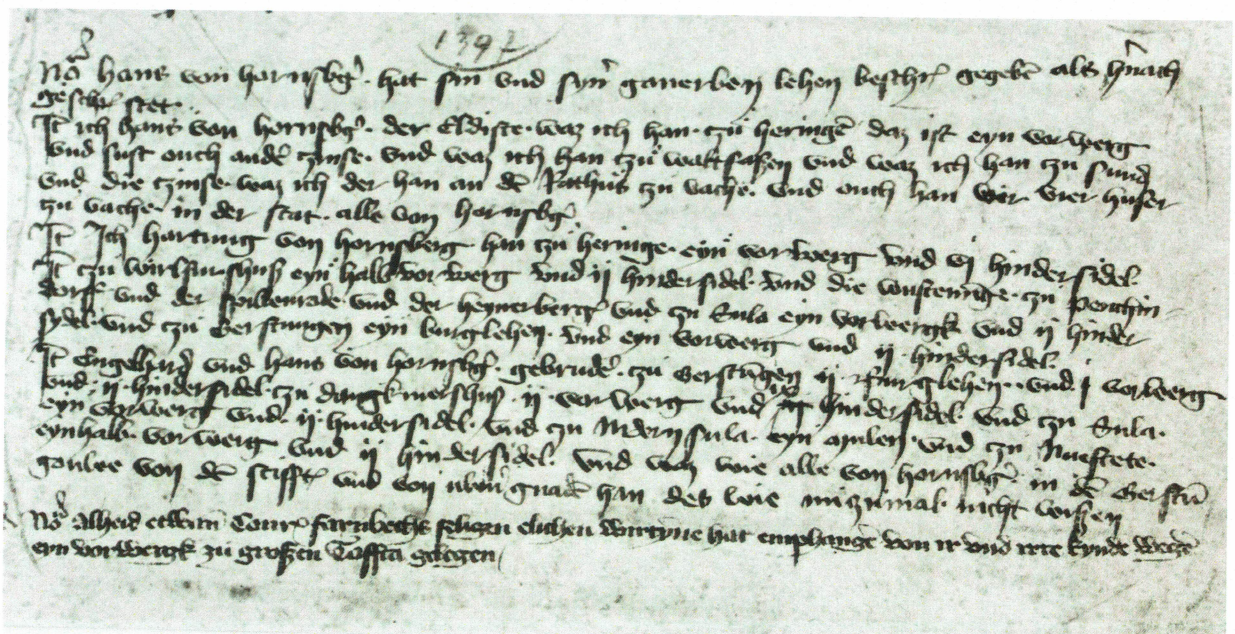 1397
No Hans von Hornsbg · hat sin vnd syn ganerben lehen beschr gegebē als hnach
geschr stet
It ich hans von hornsbg · der Eldiste · waz ich han · czu heringē daz ist eyn vorwerg
vnd sust ouch andē czinse · vnd waz ich han czu waltsaßen vnd waz ich han zu sund
vnd die czinse · waz ich der han an dē Rathus zu vache · vnd ouch han wir vier huser
zu vache in der stat · alle von hornsbg
It Ich hartung von hornsberg han czu heringe · eyn vorwerg vnd vj hindersidel
It czu eyn halb vorwerg vnd ij hindersidel · vnd die wustenūge · zu
dorff vnd der vnd der heynerberg vnd zu Sula eyn vorwergk vnd ij hinder
sydel · vnd czu Gerstungen eyn burglehen · vnd eyn vorwerg vnd ij · hindersidel
It Engelhard vnd hans von hornsbg · gebrudē · zu Gerstūgen ij burglehen · vnd j vorwerg
vnd · ij · hindersidel · zu dangkmershus · ij · vorwerg vnd hindersidel · vnd zu Sula ·
eyn vorwerg vnd · ij · hindersidel · vnd zu Nidernsula · eyn mulen · vnd zu
eynhalb · vorwerg vnd ij hindersidel · vnd waz wir alle von hornsbg in dē Gerstū
von dē stifft vnd von uwn gnadē han des wir nicht wißen
No Alheid etwan Conr farnbachs seligen elichen wirtyne hat emphangē von ir vnd irre kynde wegē
eyn vorwergk zu großen Taffta gelegen